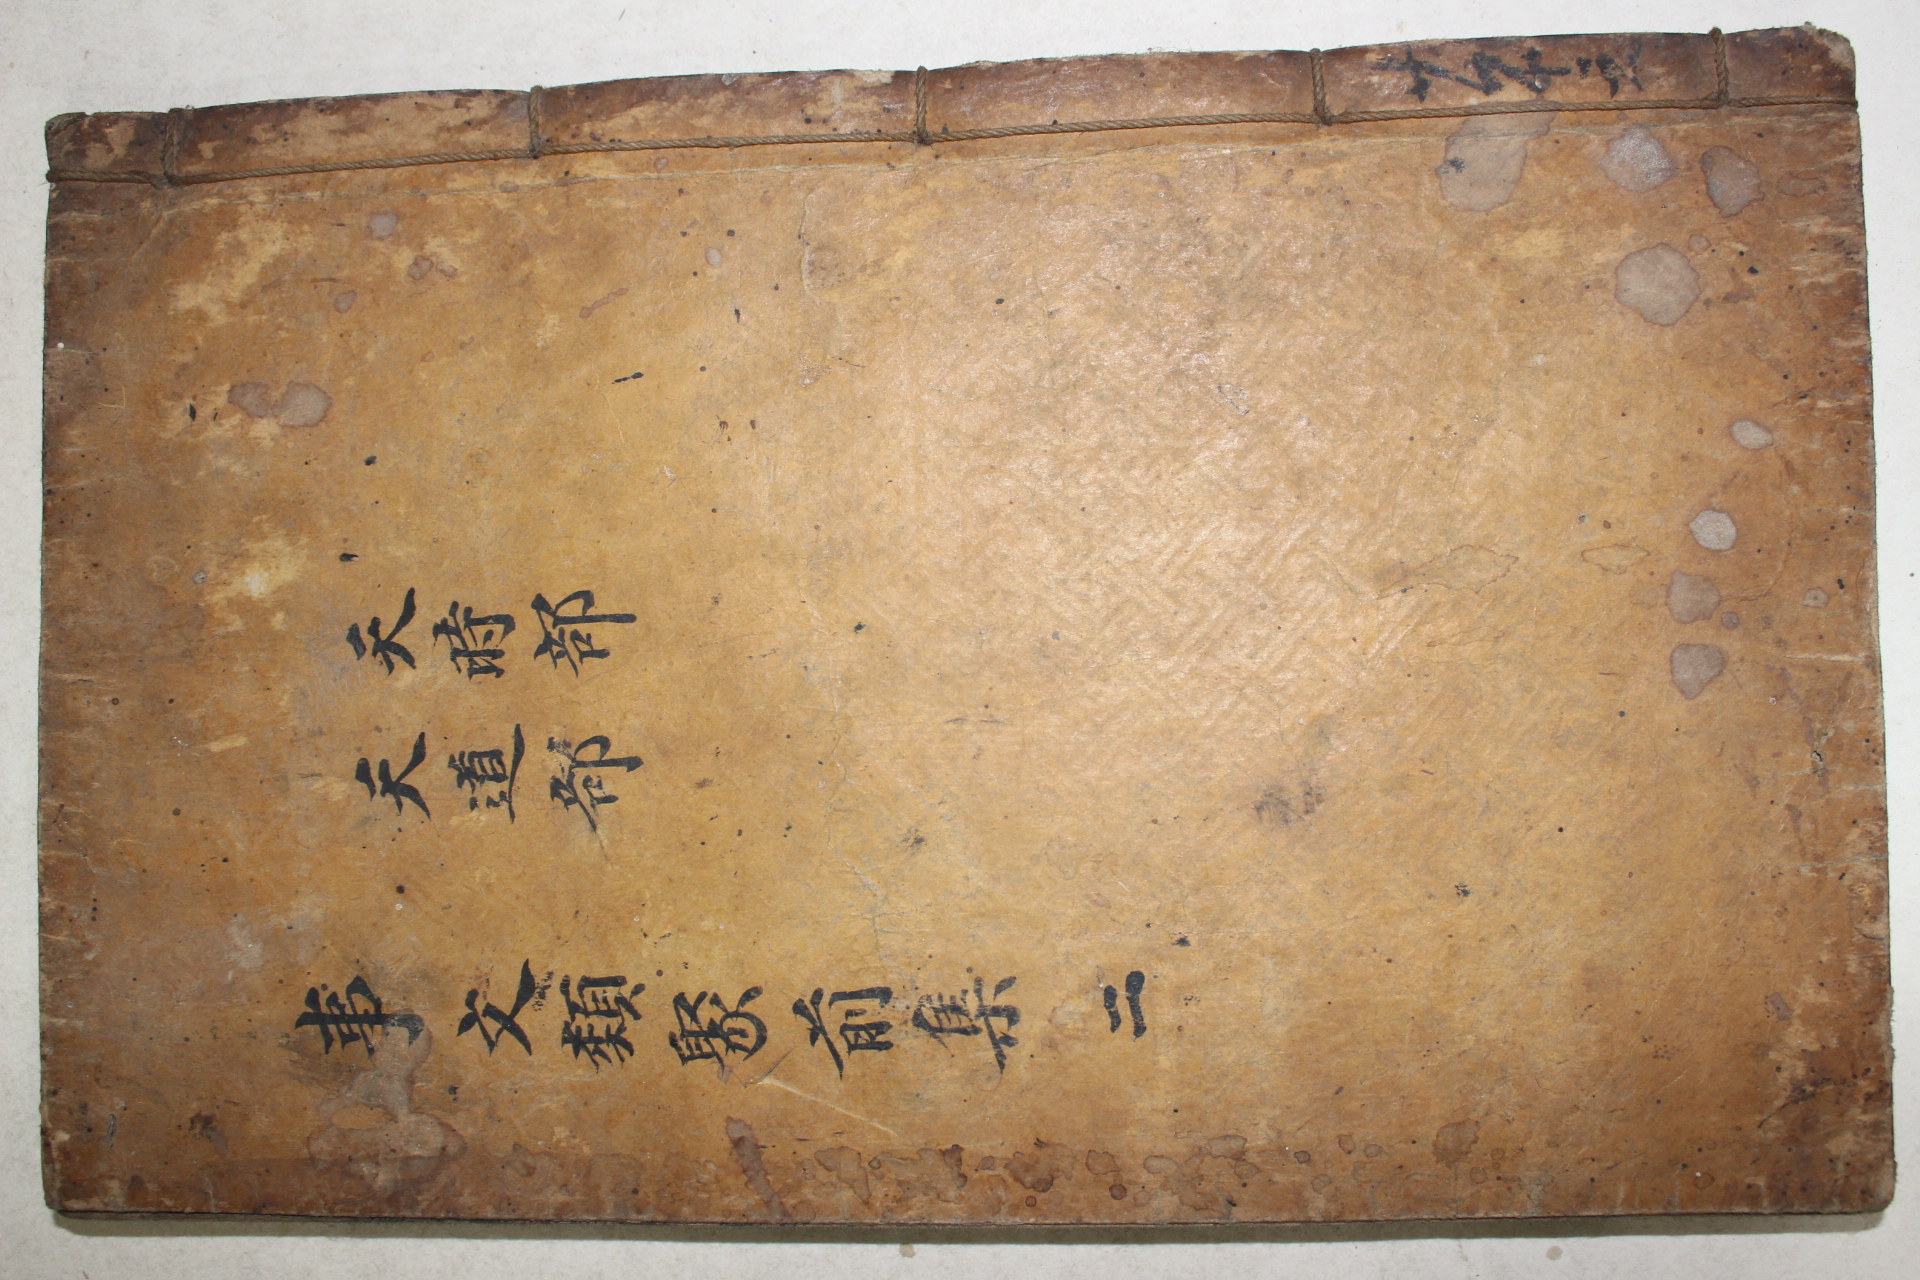 天時部
天道部
事文類聚前集 二